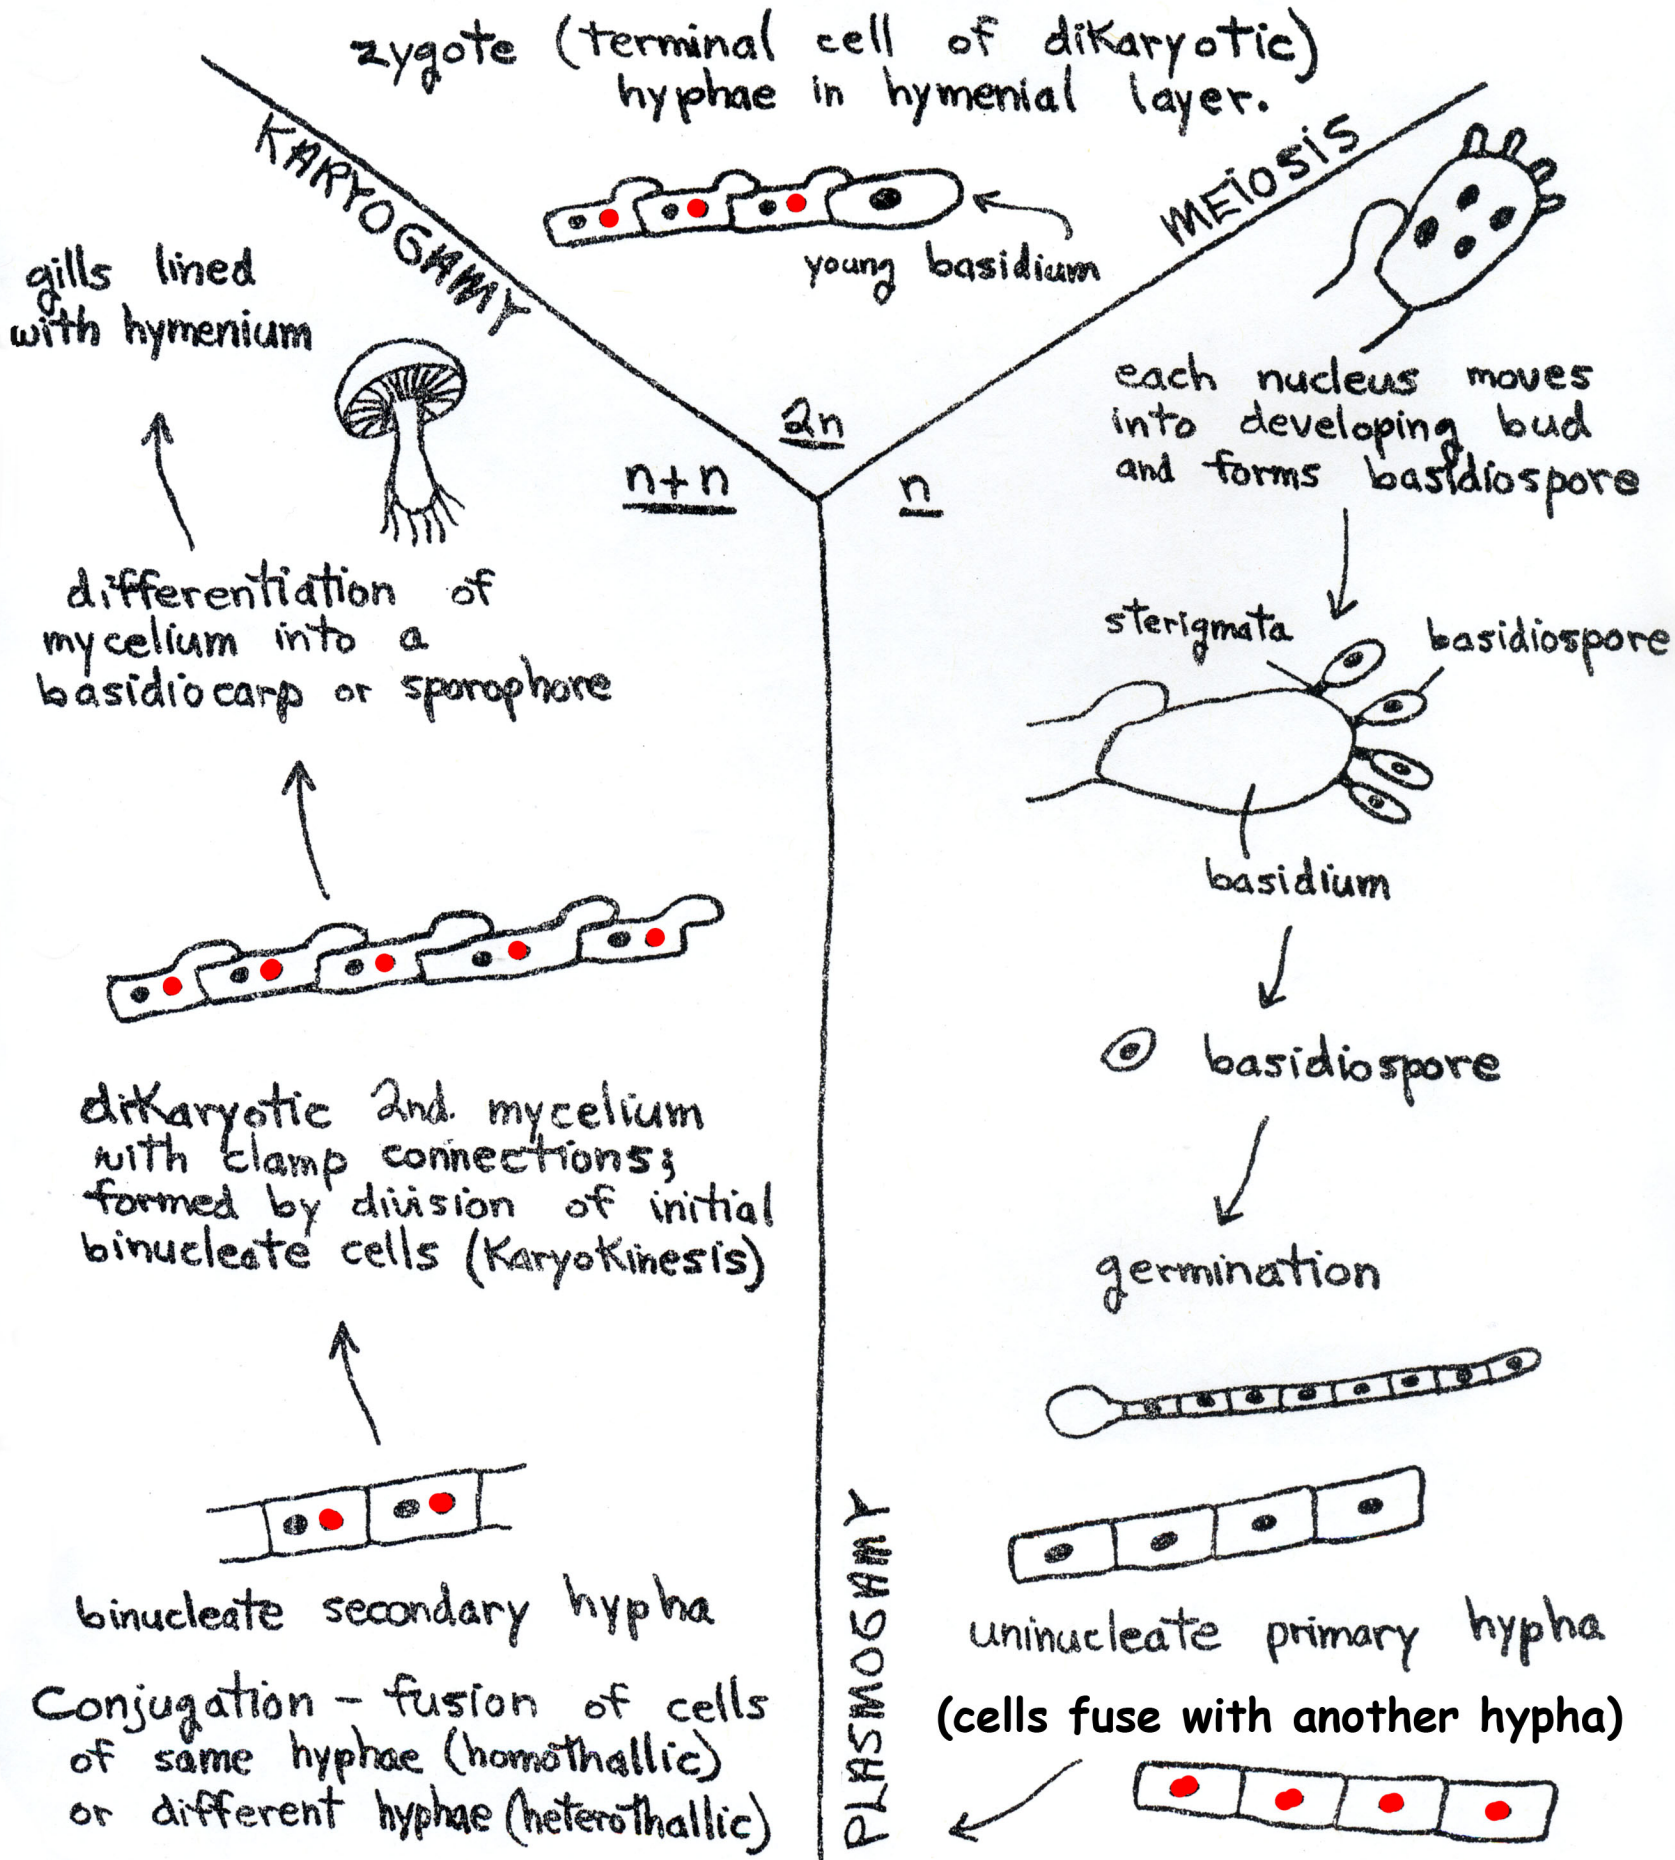 zygote (terminal cell of dikaryotic)
hyphae in hymenial layer.
KARYOGAMY
MEIOSIS
young basidium
gills lined
with hymenium
2n
n+n
n
each nucleus moves
into developing bud
and forms basidiospore
differentiation of
mycelium into a
basidiocarp or sporophore
sterigmata
basidiospore
basidium
basidiospore
dikaryotic 2nd. mycelium
with clamp connections;
formed by division of initial
binucleate cells (karyokinesis)
germination
binucleate secondary hypha
uninucleate primary hypha
Conjugation - fusion of cells
of same hyphae (homothallic)
or different hyphae (heterothallic)
PLASMOGAMY
(cells fuse with another hypha)